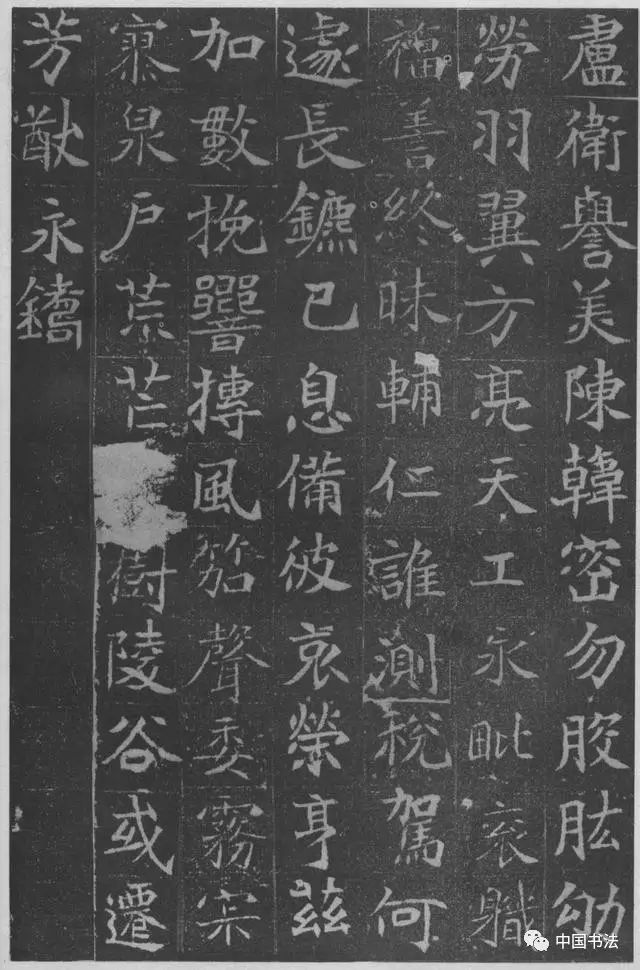 盧衛譽美陳韓密勿股肱劬
勞羽翼方亮天工永毗衮職
福善終昧輔仁誰測稅駕何
遽長鑣已息備彼哀榮亨茲
加數挽響摶風笳聲委霧寂
寞泉戶荒芒樹陵谷或遷
芳猷永鐫
中国书法